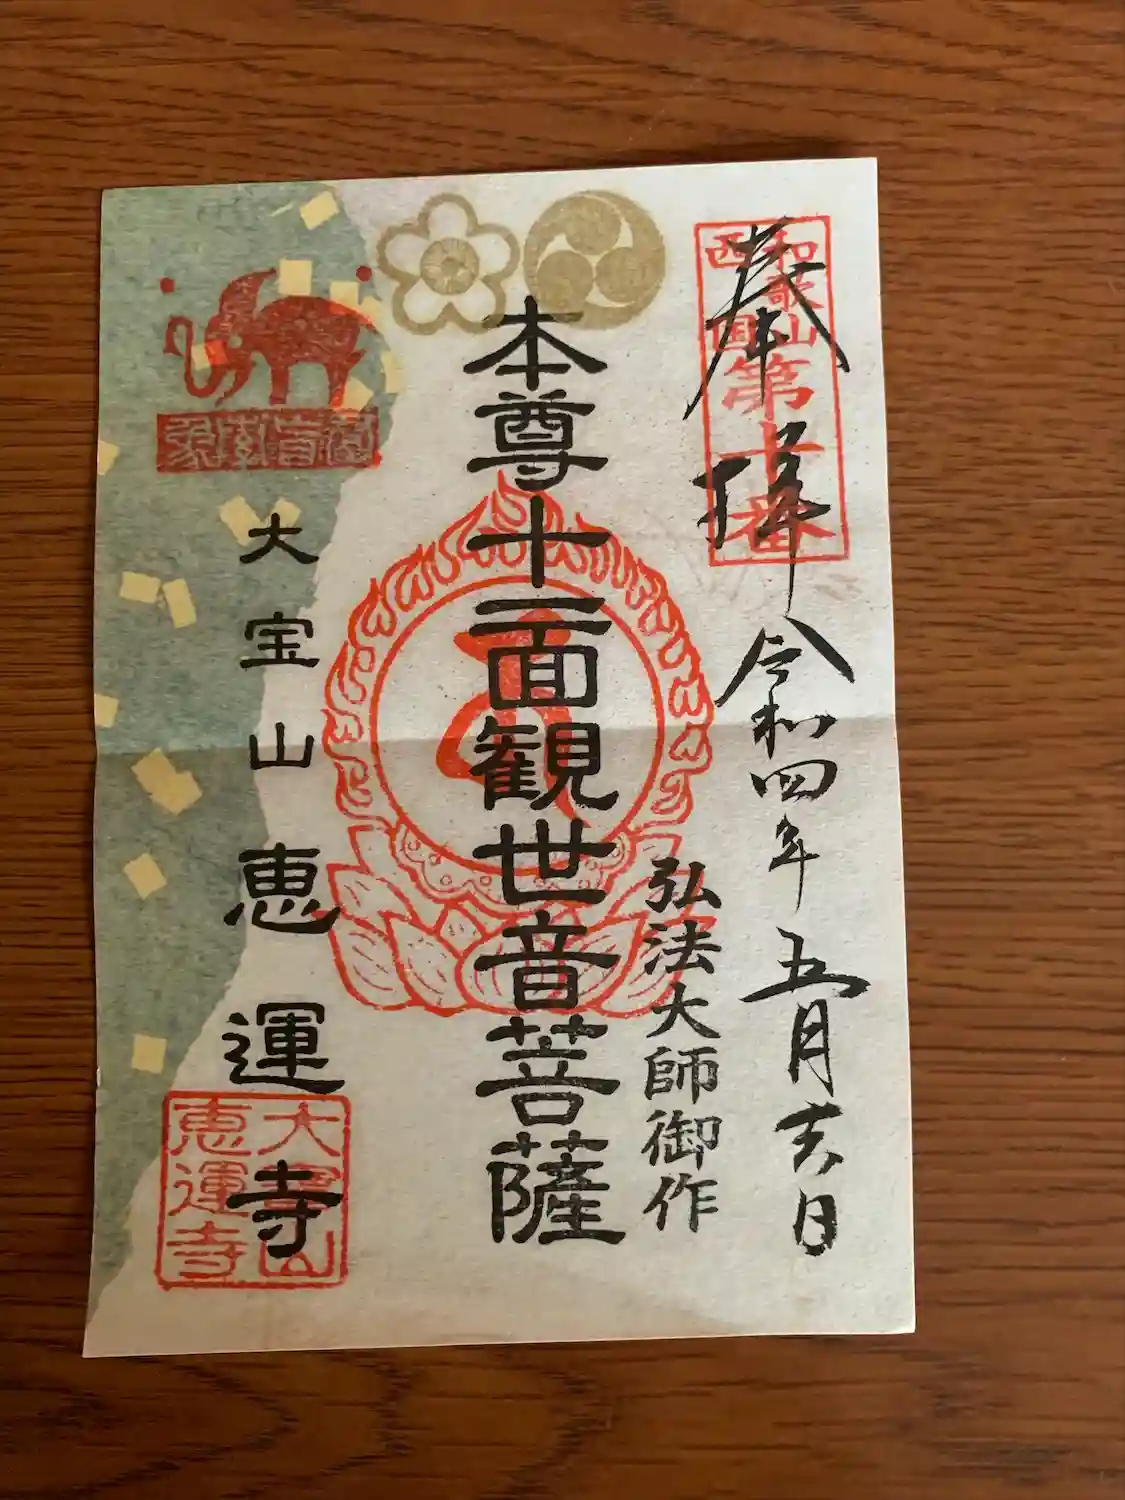 奉拝
令和四年五月十六日
和歌山
西国
第十番
弘法大師御作
本尊十一面観世音菩薩
大宝山恵運寺
大寶山
恵運寺